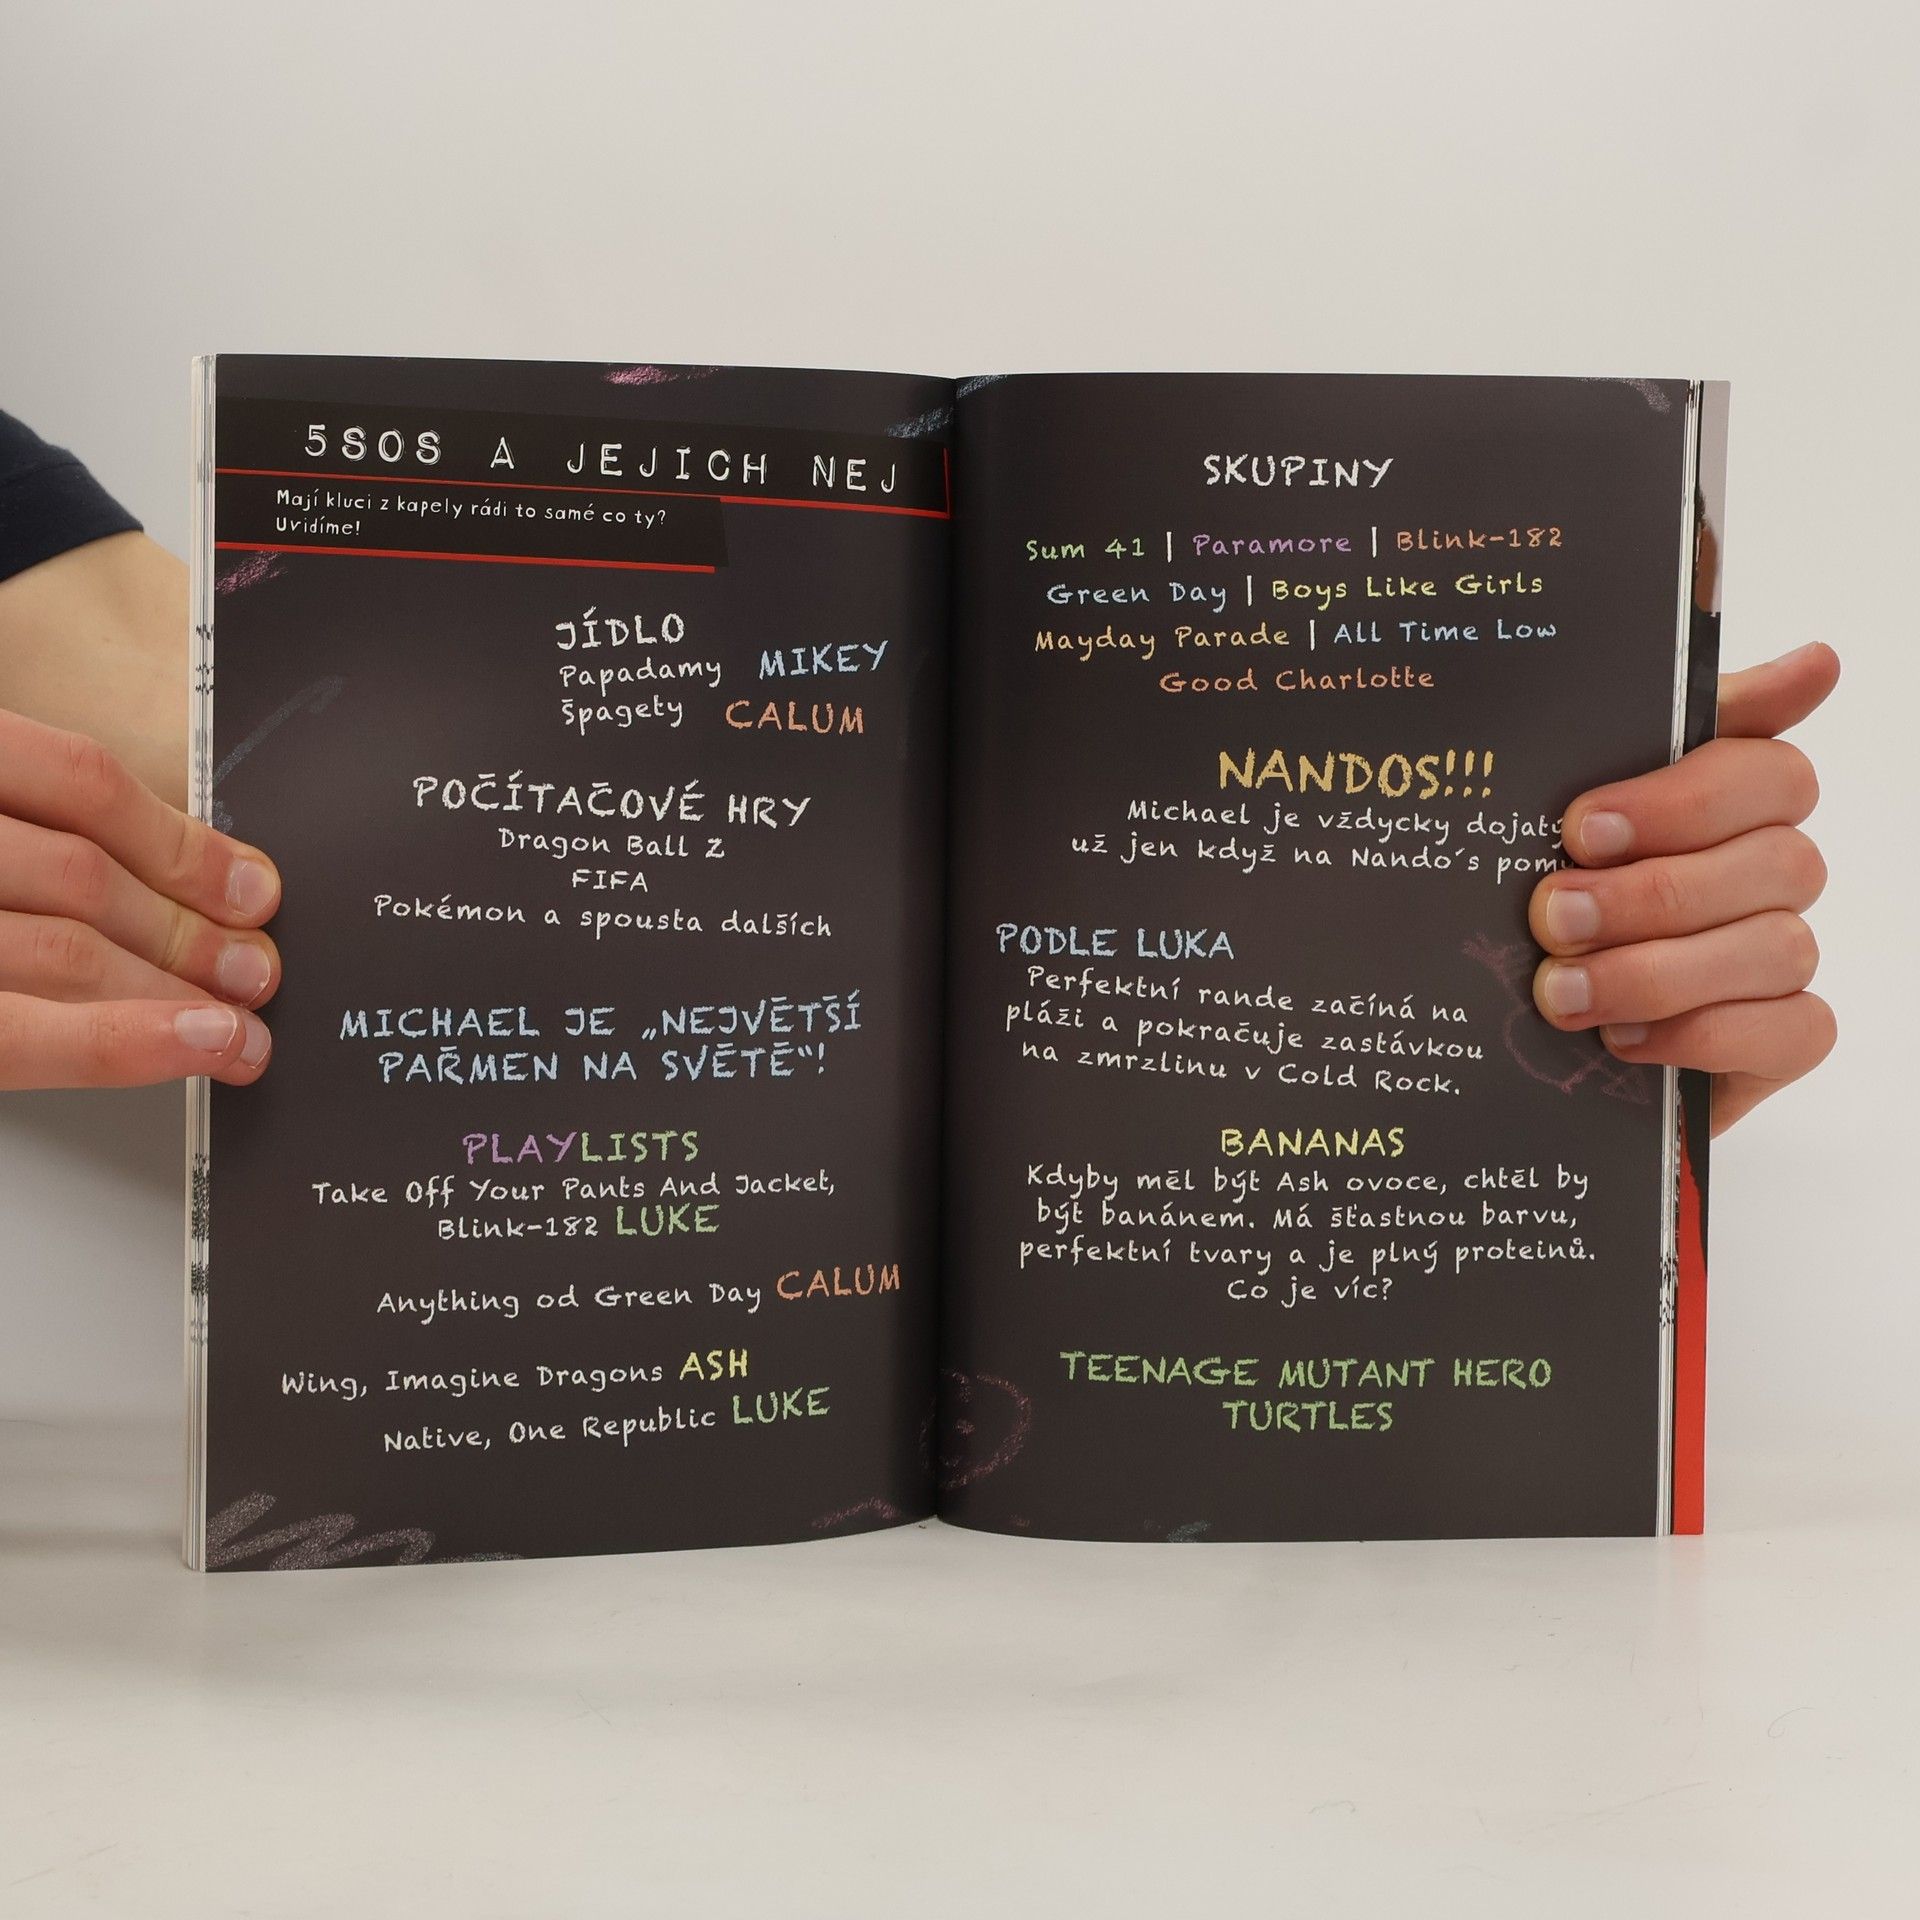 5SOS A JEJICH NEJ
Mají kluci z kapely rádi to samé co ty?
Uvidíme!
JÍDLO
Papadamy MIKEY
Špagety CALUM
POČÍTAČOVÉ HRY
Dragon Ball Z
FIFA
Pokémon a spousta dalších
MICHAEL JE „NEJVĚTŠÍ
PAŘMEN NA SVĚTĚ“!
PLAYLISTS
Take Off Your Pants And Jacket,
Blink-182 LUKE
Anything od Green Day CALUM
Wing, Imagine Dragons ASH
Native, One Republic LUKE
SKUPINY
Sum 41 | Paramore | Blink-182
Green Day | Boys Like Girls
Mayday Parade | All Time Low
Good Charlotte
NANDOS!!!
Michael je vždycky dojatý
už jen když na Nando´s
PODLE LUKA
Perfektní rande začíná na
pláži a pokračuje zastávkou
na zmrzlinu v Cold Rock.
BANANAS
Kdyby měl být Ash ovoce, chtěl by
být banánem. Má šťastnou barvu,
perfektní tvary a je plný proteinů.
Co je víc?
TEENAGE MUTANT HERO
TURTLES